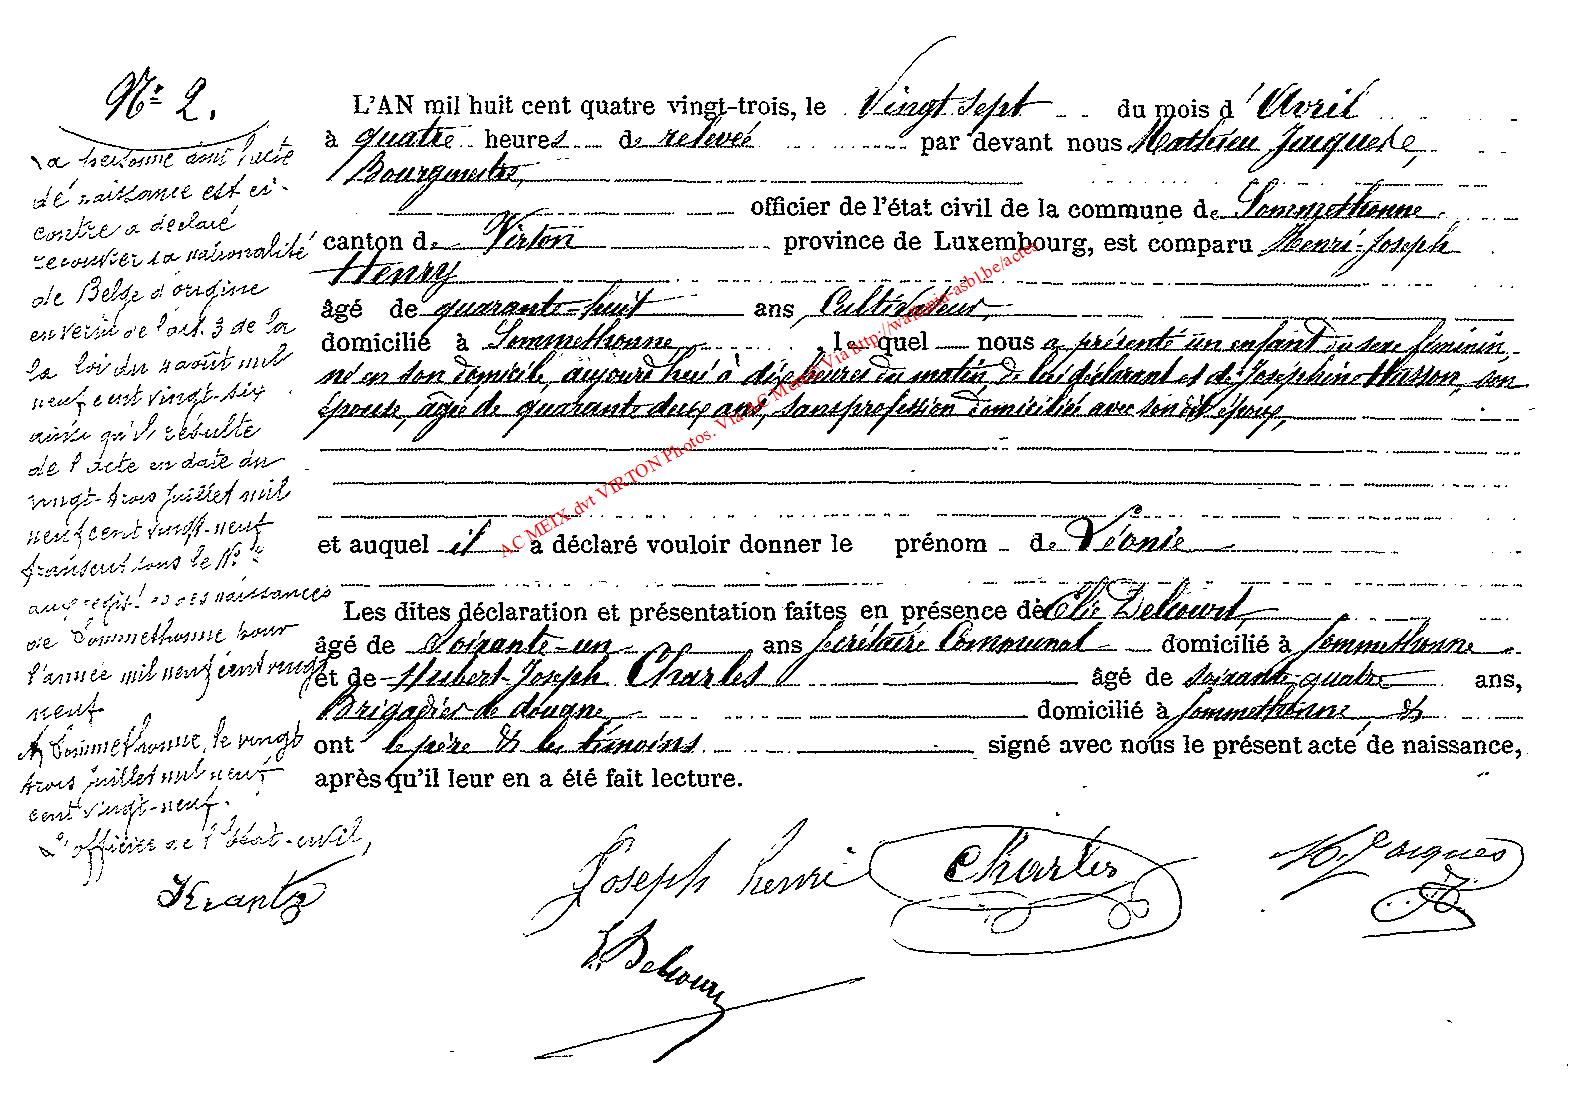 N° 2.
La personne dont l'acte
de naissance est ci-
contre a déclaré
recouvrer sa nationalité
de Belge d'origine
en vertu de l'art. 3 de la
la loi du 4 août mil
neuf cent vingt-six
ainsi qu'il résulte
de l'acte en date du
vingt-trois juillet mil
neuf cent vingt-neuf
transcrit sous le N°
aux regist. des naissances
de Sommethonne pour
l'année mil neuf cent vingt
neuf
A Sommethonne, le vingt
trois juillet mil neuf
cent vingt-neuf.
L'officier de l'état-civil,
Krantz
L'AN mil huit cent quatre vingt-trois, le Vingt sept du mois d'Avril
à quatre heures de relevée par devant nous Mathieu Jacques,
Bourgmestre,
officier de l'état civil de la commune de Sommethonne,
canton de Virton province de Luxembourg, est comparu Henri-Joseph
Henry
âgé de quarante-huit ans, Cultivateur,
domicilié à Sommethonne, lequel nous a présenté un enfant du sexe féminin,
né en son domicile, aujourd'hui à dix heures du matin, de lui déclarant et de Joséphine Hasson, son
épouse, âgée de quarante deux ans, sans profession domiciliée avec son dit époux,
et auquel il a déclaré vouloir donner le prénom de Léonie
Les dites déclaration et présentation faites en présence de Elie Delcourt,
âgé de Soixante-un ans Secrétaire Communal domicilié à Sommethonne
et de Hubert-Joseph Charles âgé de soixante-quatre ans,
Brigadier de douane, domicilié à Sommethonne, &
ont le père & les témoins signé avec nous le présent acte de naissance,
après qu'il leur en a été fait lecture.
Joseph henri Charles M. Jacques
E. Delcourt
AC MEIX dvt VIRTON Photos. Via AC Meix. Via http://watermin-asbl.be/actes